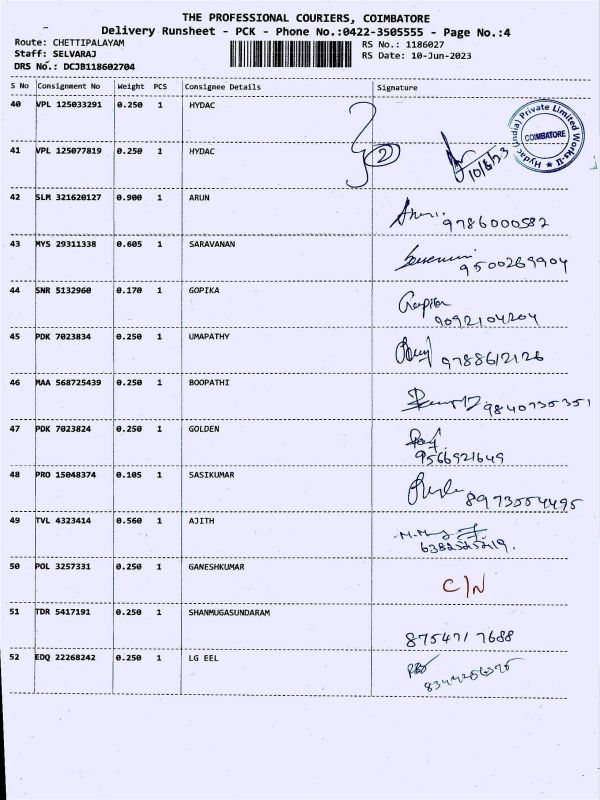 THE PROFESSIONAL COURIERS, COIMBATORE
Delivery Runsheet - PCK - Phone No.:0422-3505555 - Page No.:4
Route: CHETTIPALAYAM RS No.: 1186027
Staff: SELVARAJ RS Date: 10-Jun-2023
DRS No.: DCJB118602704
S No Consignment No Weight PCS Consignee Details Signature
40 VPL 125033291 0.250 1 HYDAC
Hydac (India) Private Limited Works-II ★
COIMBATORE
41 VPL 125077819 0.250 1 HYDAC 2 10/6/23
42 SLM 321620127 0.900 1 ARUN
9786000582
43 MYS 29311338 0.605 1 SARAVANAN
9500269904
44 SNR 5132960 0.170 1 GOPIKA Gopika
9092104204
45 PDK 7023834 0.250 1 UMAPATHY
9788612126
46 MAA 568725439 0.250 1 BOOPATHI
9840735351
47 PDK 7023824 0.250 1 GOLDEN
9566921649
48 PRO 15048374 0.105 1 SASIKUMAR
8973554495
49 TVL 4323414 0.560 1 AJITH
6382525219.
50 POL 3257331 0.250 1 GANESHKUMAR
C/N
51 TDR 5417191 0.250 1 SHANMUGASUNDARAM
875471 7688
52 EDQ 22268242 0.250 1 LG EEL